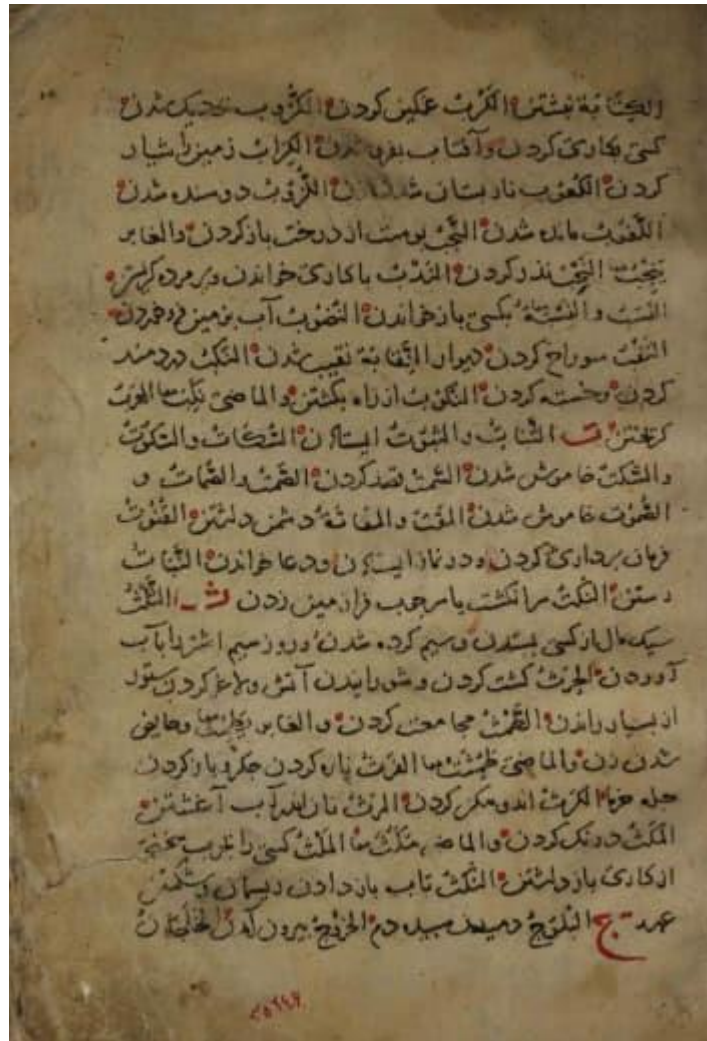 الكِتَابَة نبشتن الكَرْبُ غمكين كردن الكُرُوب نزديك شدن
كسى بكارى كردن وآفتاب بفرو شدن الكِرابُ زمين را شيار
كردن الكُعُوبُ نار بستان شدن زن اللُّزُوبُ دوسنده شدن
اللُّغُوبُ مانده شدن النَّجْبُ بوست از درخت باز كردن والغابر
يَنْجُبُ معا النَّحْبُ نذر كردن النَّدْبُ با كارى خواندن وبر مرده كريستن
النَسَبُ والنِسْبَة بكسى باز خواندن النُّضُوبُ آب بزمين فرو خوردن
النَقْبُ سوراخ كردن ديوار النِّقابَة نقيب شدن النَكْبُ دردمند
كردن وخسته كردن النُّكُوبُ از راه بكشتن والماضى نَكِبَ معا الهَرَبُ
كريختن ت الثَّباتُ والثبُوتُ ايستادن السُّكاتُ والسُّكُوتُ
والسَّكْتُ خاموش شدن السَّمْتُ قصد كردن الصَّمْتُ والصُّماتُ و
الصُّمُوتُ خاموش شدن المَقْتُ والمَقاتَةُ دشمن داشتن القُنُوتُ
فرمان بردارى كردن ودر نماز ايستادن ودعا خواندن النَّباتُ
رستن النَّكْتُ سر انكشت يا سر جوب فرا زمين زدن ث الثَّلْثُ
سيك مال از كسى بستدن وسيم كرده شدن وروز سيم اشتر را بآب
آوردن الحَرْثُ كشت كردن وشورانيدن آتش ولاغر كردن ستور
از بسيار راندن الطَّمْثُ مجامعت كردن والغابر يَطْمِثُ معا وحايض
شدن زن والماضى طَمِثَتْ معا الفَرْثُ باره كردن جكر وباز كردن
جله خرما الكَرْثُ اندوهكن كردن المَرْثُ نان اندر آب آغشتن
المَكْثُ درنك كردن والماضى مَكُثَ معا المَلْثُ كسى را بخرب سخنى
از كارى باز داشتن النَّكْثُ تاب باز دادن ريسمان وشكستن
عهد ج البُلُوجُ دميدن سبيده دم الخُرُوجُ بيرون آمدن
٢٥٦٤٦